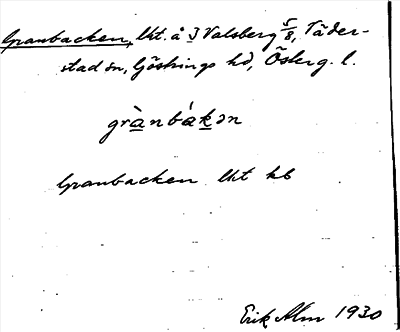 Granbacken, lht. å 3 Valsberg 5/8, Täder-
stad sn, Göstrings hd, Österg. l.
grànbákən
Granbacken lht hb
Erik Alm 1930